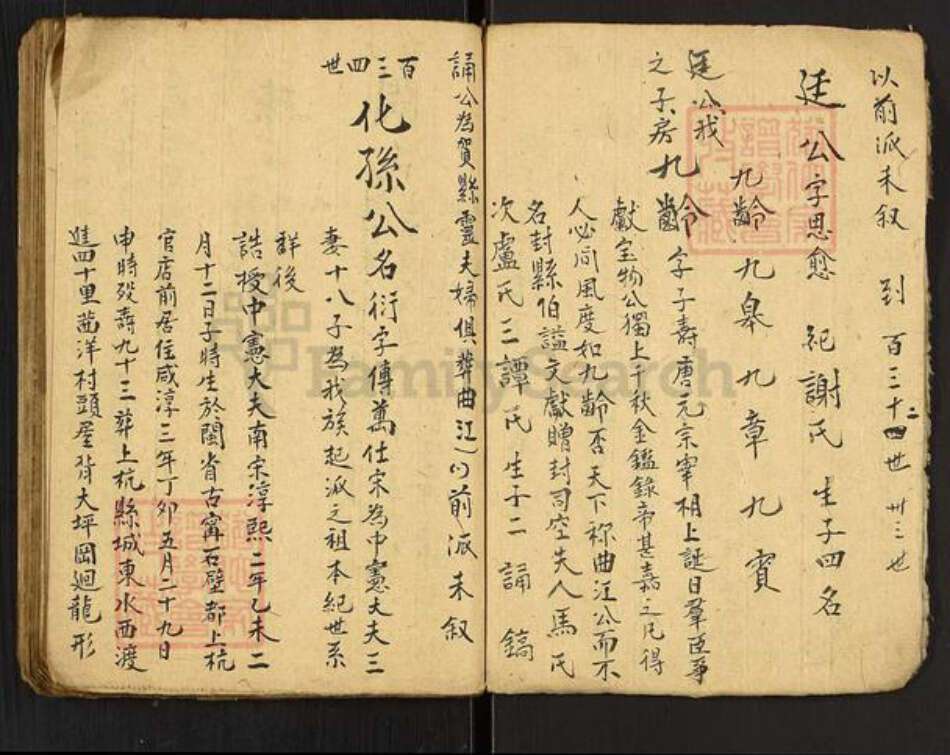 以前派未叙 到 百三十二四世 卅三世
廷公字思愈 妣謝氏 生子四名
九齡 九皋 九章 九賓
廷公我
之子房九齡字子壽唐元宗宰相上誕日羣臣爭
獻宝物公獨上千秋金鑑錄帝甚嘉之凡得
人必问風度如九齡否天下称曲江公而不
名封縣伯謚文獻贈封司空夫人馬氏
次盧氏三譚氏 生子二 誦 鎬
誦公為賀縣靈夫婦俱葬曲江以前派未叙
百三四世
化孫公名衍字傳萬仕宋為中憲大夫三
妻十八子為我族起派之祖本紀世系
詳後
誥授中憲大夫南宋淳熙二年乙未二
月十二日子時生於閩省古寗石壁都上杭
官店前居住咸淳三年丁卯五月二十九日
申時殁壽九十三葬上杭縣城東水西渡
進四十里茜洋村頭屋背大坪岡迴龍形
FamilySearch